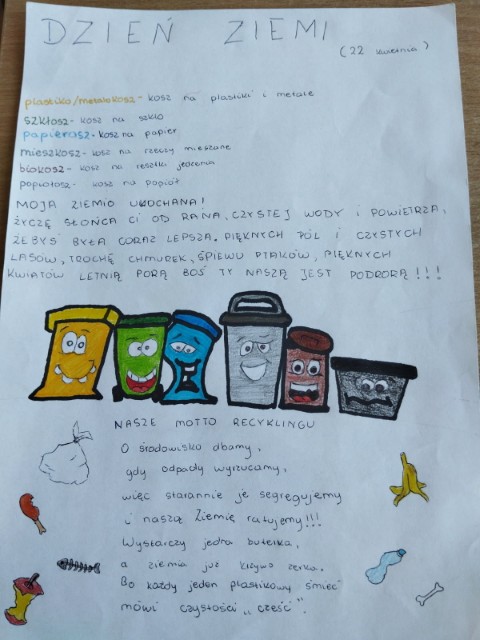 DZIEŃ ZIEMI
(22 kwietnia)
plastiko/metalokosz- kosz na plastiki i metale
szkłosz- kosz na szkło
papierosz- kosz na papier
mieszkosz- kosz na rzeczy mieszane
biokosz- kosz na resztki jedzenia
popiołosz- kosz na popiół
MOJA ZIEMIO UKOCHANA!
ŻYCZĘ SŁOŃCA CI OD RANA, CZYSTEJ WODY i POWIETRZA,
ŻEBYŚ BYŁA CORAZ LEPSZA. PIĘKNYCH PÓL I CZYSTYCH
LASÓW, TROCHĘ CHMUREK, ŚPIEWU PTAKÓW, PIĘKNYCH
KWIATÓW LETNIĄ PORĄ BOŚ TY NASZĄ JEST PODPORĄ!!!
NASZE MOTTO RECYKLINGU
O środowisko dbamy,
gdy odpady wyrzucamy,
więc starannie je segregujemy
i naszą Ziemię ratujemy!!!
Wystarczy jedna butelka,
a ziemia już krzywo zerka.
Bo każdy jeden plastikowy śmieć
mówi czystości „cześć".